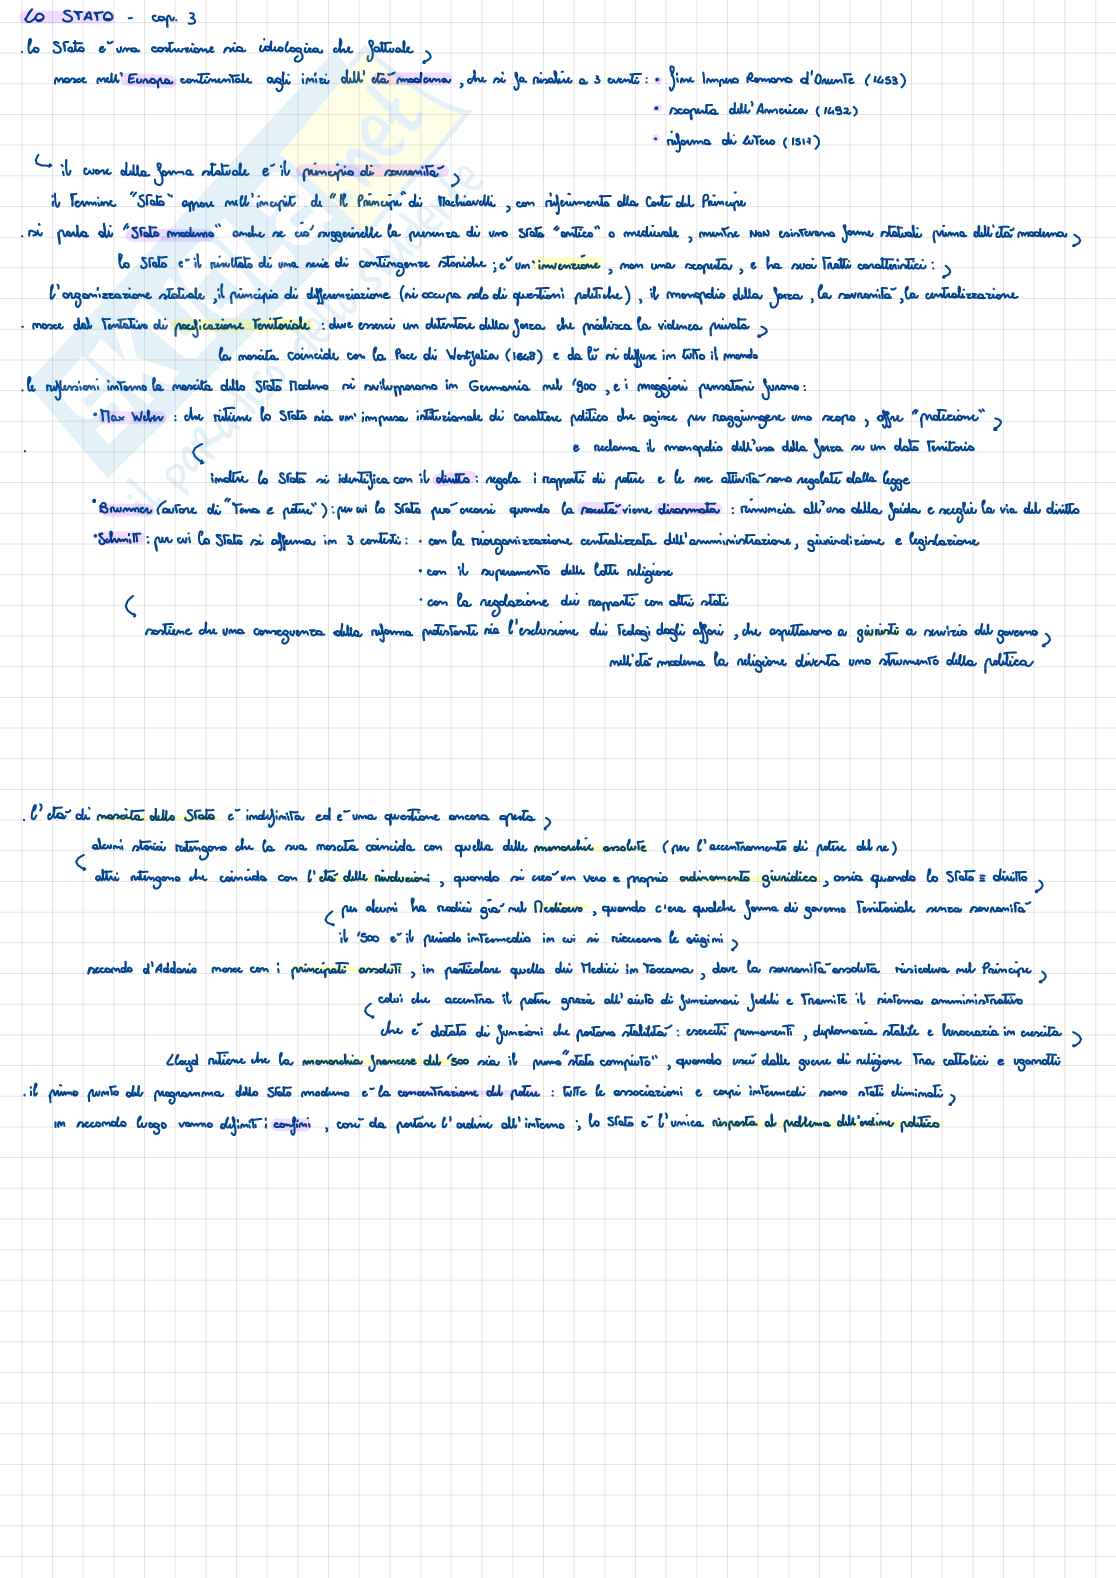 LO STATO - cap. 3
. lo Stato è una costruzione sia ideologica che fattuale
nasce nell'Europa continentale agli inizi dell'età moderna, che si fa risalire a 3 eventi: • fine Impero Romano d'Oriente (1453)
• scoperta dell'America (1492)
• riforma di Lutero (1517)
il cuore della forma statuale è il principio di sovranità
il termine "Stato" appare nell'incipit de "Il Principe" di Machiavelli, con riferimento alla Corte del Principe
. si parla di "Stato moderno" anche se ciò suggerirebbe la presenza di uno Stato "antico" o medievale, mentre NON esistevano forme statuali prima dell'età moderna
lo Stato è il risultato di una serie di contingenze storiche; è un'invenzione, non una scoperta, e ha suoi tratti caratteristici:
l'organizzazione statuale, il principio di differenziazione (si occupa solo di questioni politiche), il monopolio della forza, la sovranità, la centralizzazione
. nasce dal tentativo di pacificazione territoriale: deve esserci un detentore della forza che proibisca la violenza privata
la nascita coincide con la Pace di Westfalia (1648) e da lì si diffuse in tutto il mondo
. le riflessioni intorno la nascita dello Stato Moderno si svilupparono in Germania nel '900, e i maggiori pensatori furono:
• Max Weber: che ritiene lo Stato sia un'impresa istituzionale di carattere politico che agisce per raggiungere uno scopo, offre "protezione"
e reclama il monopolio dell'uso della forza su un dato territorio
inoltre lo Stato si identifica con il diritto: regola i rapporti di potere e le sue attività sono regolate dalla legge
• Brunner (autore di "Terra e potere"): per cui lo Stato può crearsi quando la società viene disarmata: rinuncia all'uso della faida e sceglie la via del diritto
• Schmitt: per cui lo Stato si afferma in 3 contesti: • con la riorganizzazione centralizzata dell'amministrazione, giurisdizione e legislazione
• con il superamento delle lotte religiose
• con la regolazione dei rapporti con altri stati
sostiene che una conseguenza della riforma protestante sia l'esclusione dei teologi dagli affari, che aspettavano a giuristi a servizio del governo
nell'età moderna la religione diventa uno strumento della politica
. l'età di nascita dello Stato è indefinita ed è una questione ancora aperta
alcuni storici ritengono che la sua nascita coincida con quella delle monarchie assolute (per l'accentramento di potere del re)
altri ritengono che coincida con l'età delle rivoluzioni, quando si creò un vero e proprio ordinamento giuridico, ossia quando lo Stato ≡ diritto
per alcuni ha radici già nel Medioevo, quando c'era qualche forma di governo territoriale senza sovranità
il '500 è il periodo intermedio in cui si ricercano le origini
secondo d'Addario nasce con i principati assoluti, in particolare quello dei Medici in Toscana, dove la sovranità assoluta risiedeva nel Principe
colui che accentra il potere grazie all'aiuto di funzionari fedeli e tramite il sistema amministrativo
che è dotato di funzioni che portano stabilità: eserciti permanenti, diplomazia stabile e burocrazia in crescita
Lloyd ritiene che la monarchia francese del '500 sia il primo "stato compiuto", quando uscì dalle guerre di religione tra cattolici e ugonotti
. il primo punto del programma dello Stato moderno è la concentrazione del potere: tutte le associazioni e corpi intermedi sono stati eliminati
in secondo luogo vanno definiti i confini, così da portare l'ordine all'interno; lo Stato è l'unica risposta al problema dell'ordine politico